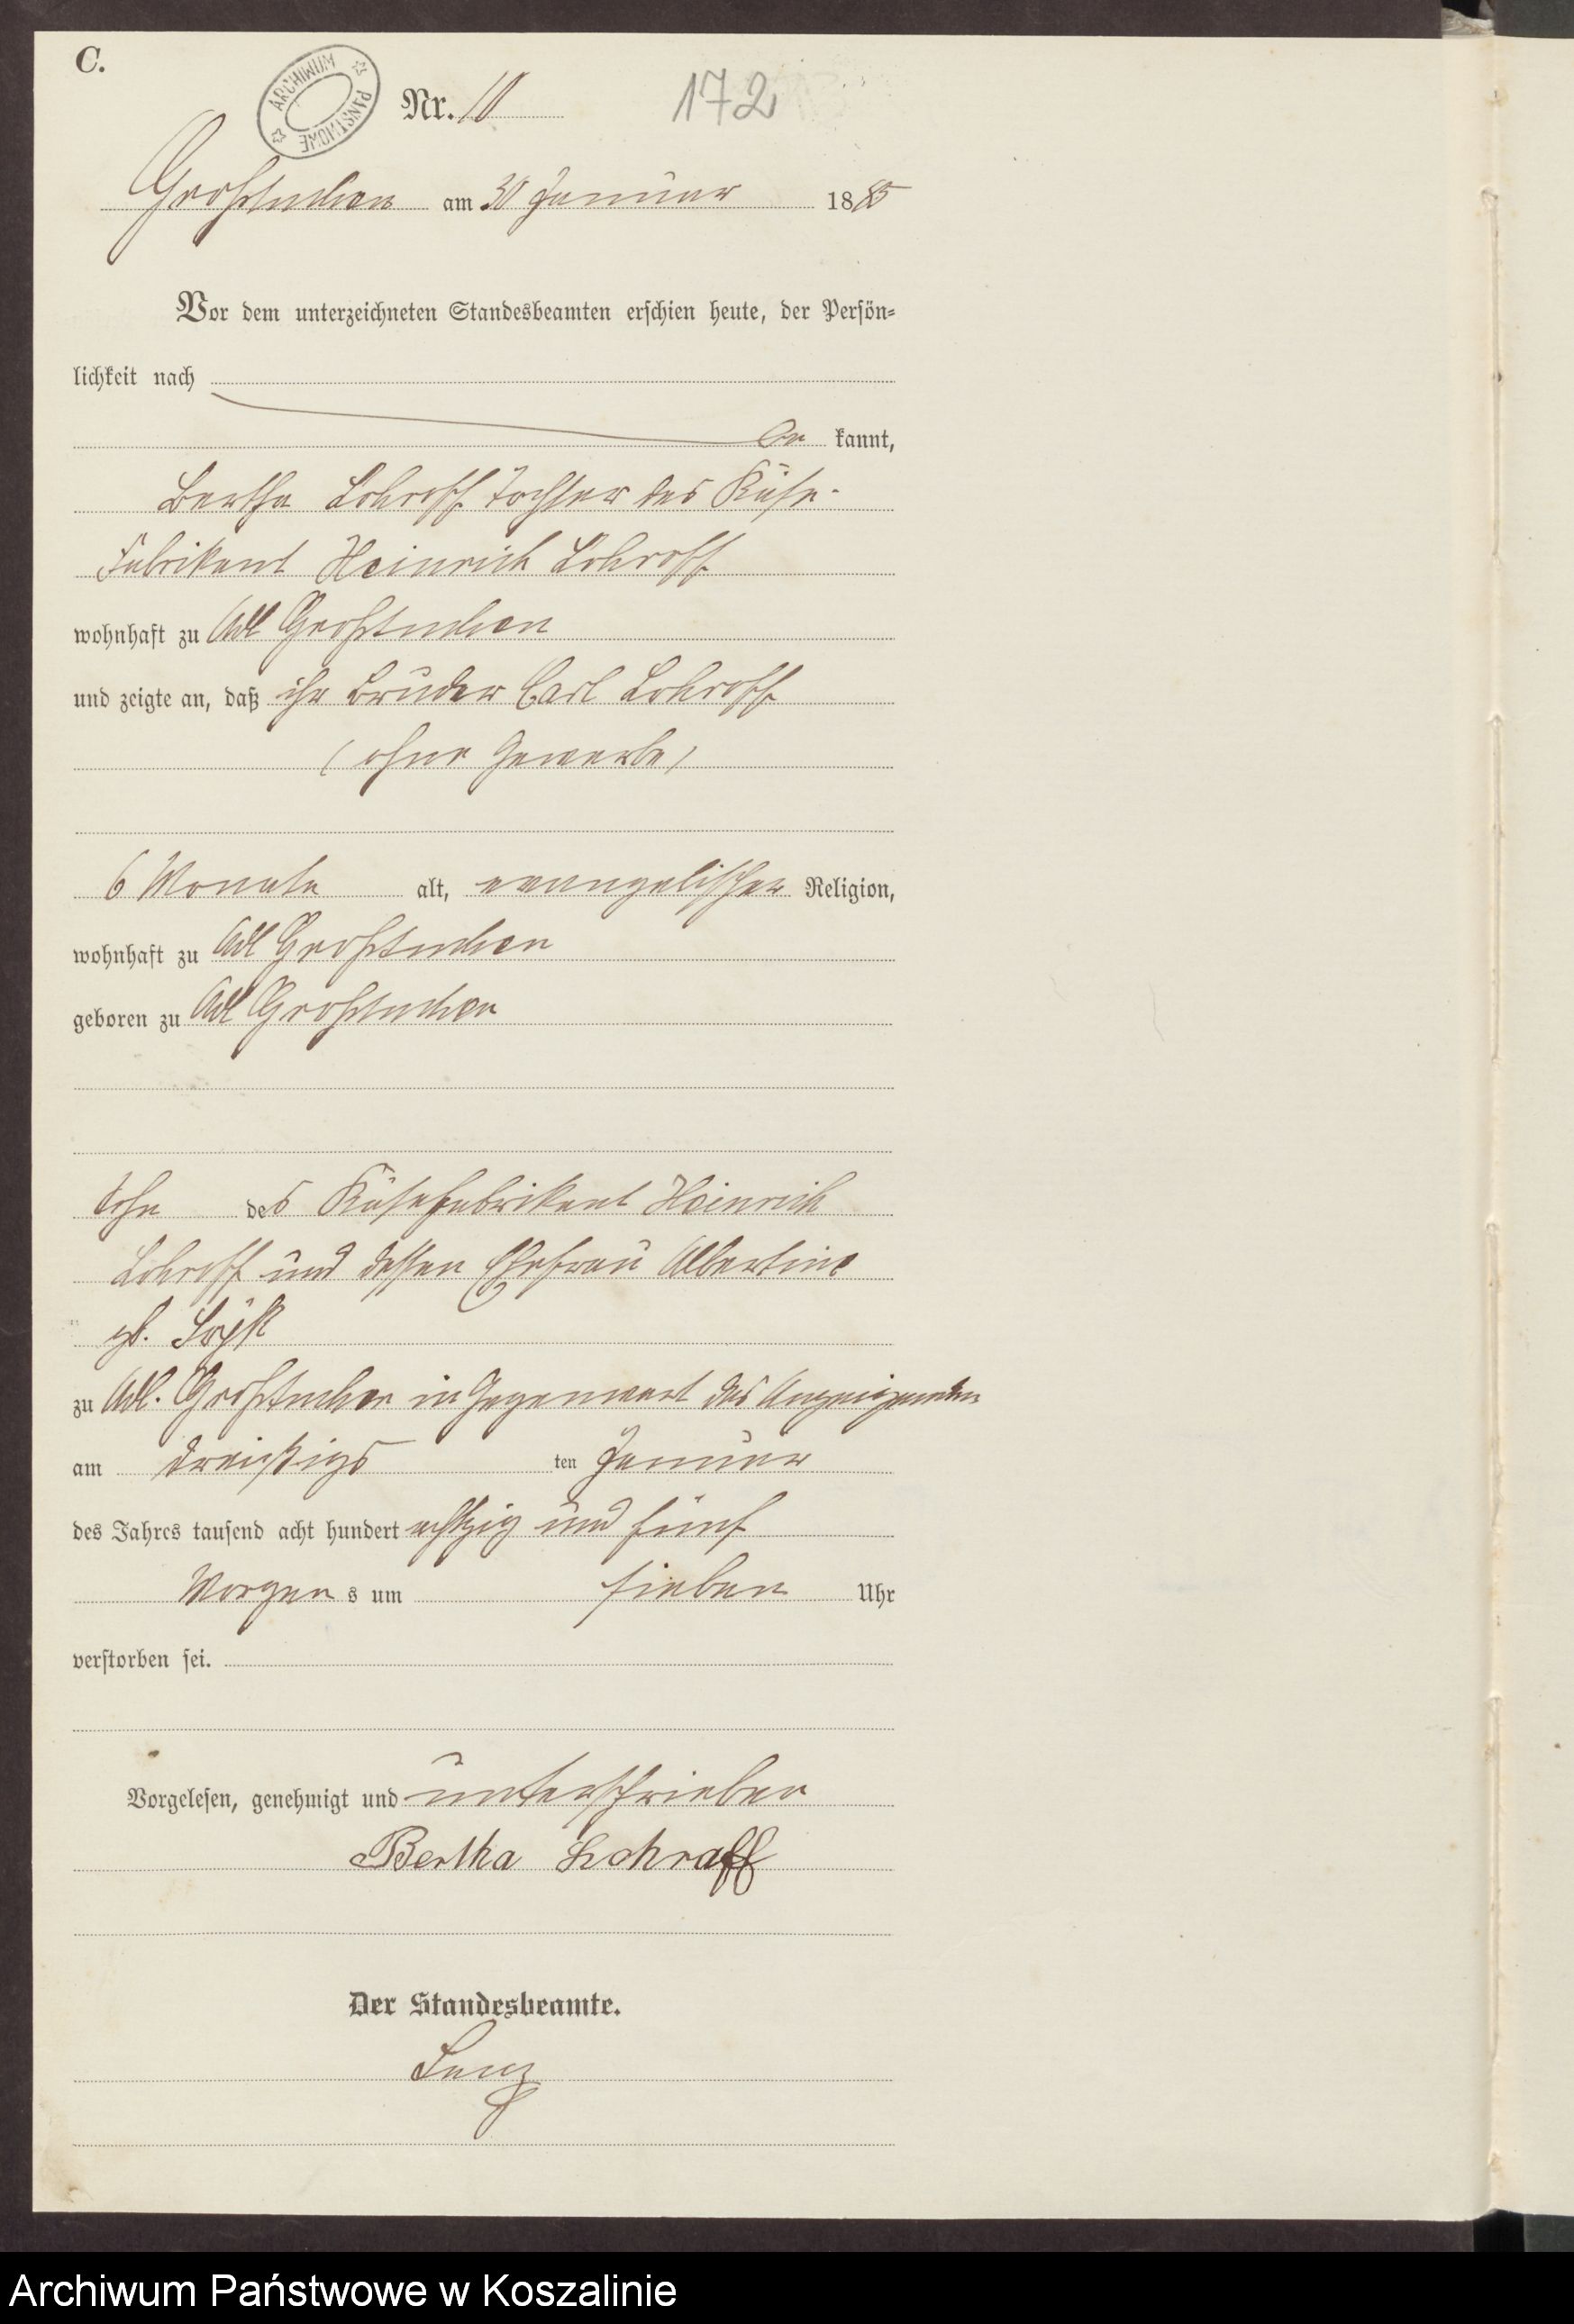 C.
ARCHIWUM PAŃSTWOWE
Nr. 10
172
Großtuchen am 30 Januar 1885
Vor dem unterzeichneten Standesbeamten erschien heute, der Persön=
lichkeit nach
be kannt,
Bertha Lohroff Tochter des Käse-
Fabrikant Heinrich Lohroff
wohnhaft zu Adl Großtuchen
und zeigte an, daß ihr Bruder Carl Lohroff
(ohne Gewerbe)
6 Monate alt, evangelischer Religion,
wohnhaft zu Adl Großtuchen
geboren zu Adl Großtuchen
Sohn des Käsefabrikant Heinrich
Lohroff und dessen Ehefrau Albertine
geb.
zu Adl. Großtuchen in Gegenwart des Anzeigenden
am dreißigs ten Januar
des Jahres tausend acht hundert achtzig und fünf
Morgen s um sieben Uhr
verstorben sei.
Vorgelesen, genehmigt und unterschrieben
Bertha Lohraff
Der Standesbeamte.
Archiwum Państwowe w Koszalinie